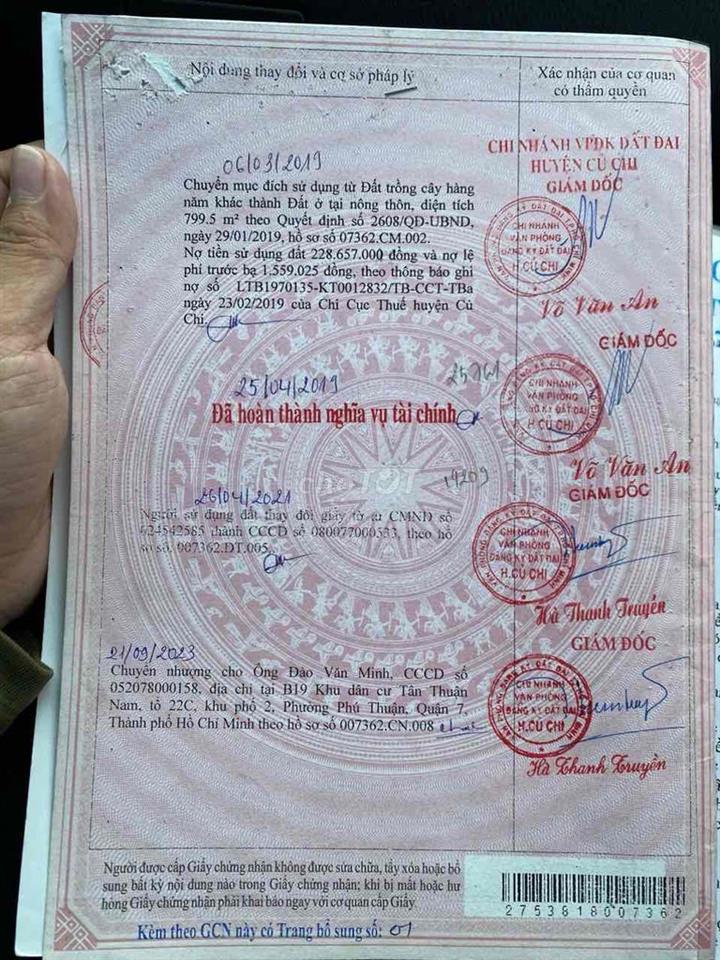 Nội dung thay đổi và cơ sở pháp lý
Xác nhận của cơ quan
có thẩm quyền
06/03/2019
Chuyển mục đích sử dụng từ Đất trồng cây hàng
năm khác thành Đất ở tại nông thôn, diện tích
799.5 m² theo Quyết định số 2608/QĐ-UBND,
ngày 29/01/2019, hồ sơ số 07362.CM.002.
Nợ tiền sử dụng đất 228.657.000 đồng và nợ lệ
phí trước bạ 1.559.025 đồng, theo thông báo ghi
nợ số LTB1970135-KT0012832/TB-CCT-TBa
ngày 23/02/2019 của Chi Cục Thuế huyện Củ
Chi.
CHI NHÁNH VPĐK ĐẤT ĐAI
HUYỆN CỦ CHI
GIÁM ĐỐC
CHI NHÁNH
VĂN PHÒNG
ĐĂNG KÝ ĐẤT ĐAI
H.CỦ CHI
Võ Văn An
25/04/2019
25961
Đã hoàn thành nghĩa vụ tài chính
GIÁM ĐỐC
CHI NHÁNH
VĂN PHÒNG
ĐĂNG KÝ ĐẤT ĐAI
H.CỦ CHI
Võ Văn An
CHỢ TỐT
14209
26/04/2021
Người sử dụng đất thay đổi giấy tờ từ CMND số
024542585 thành CCCD số 080077000533, theo hồ
sơ số. 007362.DT.005.
GIÁM ĐỐC
CHI NHÁNH
VĂN PHÒNG
ĐĂNG KÝ ĐẤT ĐAI
H.CỦ CHI
Hà Thanh Truyền
21/09/2023
Chuyển nhượng cho Ông Đào Văn Minh, CCCD số
052078000158, địa chỉ tại B19 Khu dân cư Tân Thuận
Nam, tổ 22C, khu phố 2, Phường Phú Thuận, Quận 7,
Thành phố Hồ Chí Minh theo hồ sơ số 007362.CN.008
GIÁM ĐỐC
CHI NHÁNH
VĂN PHÒNG
ĐĂNG KÝ ĐẤT ĐAI
H.CỦ CHI
Hà Thanh Truyền
Người được cấp Giấy chứng nhận không được sửa chữa, tẩy xóa hoặc bổ
sung bất kỳ nội dung nào trong Giấy chứng nhận; khi bị mất hoặc hư
hỏng Giấy chứng nhận phải khai báo ngay với cơ quan cấp Giấy.
2753818007362
Kèm theo GCN này có Trang bổ sung số: 01